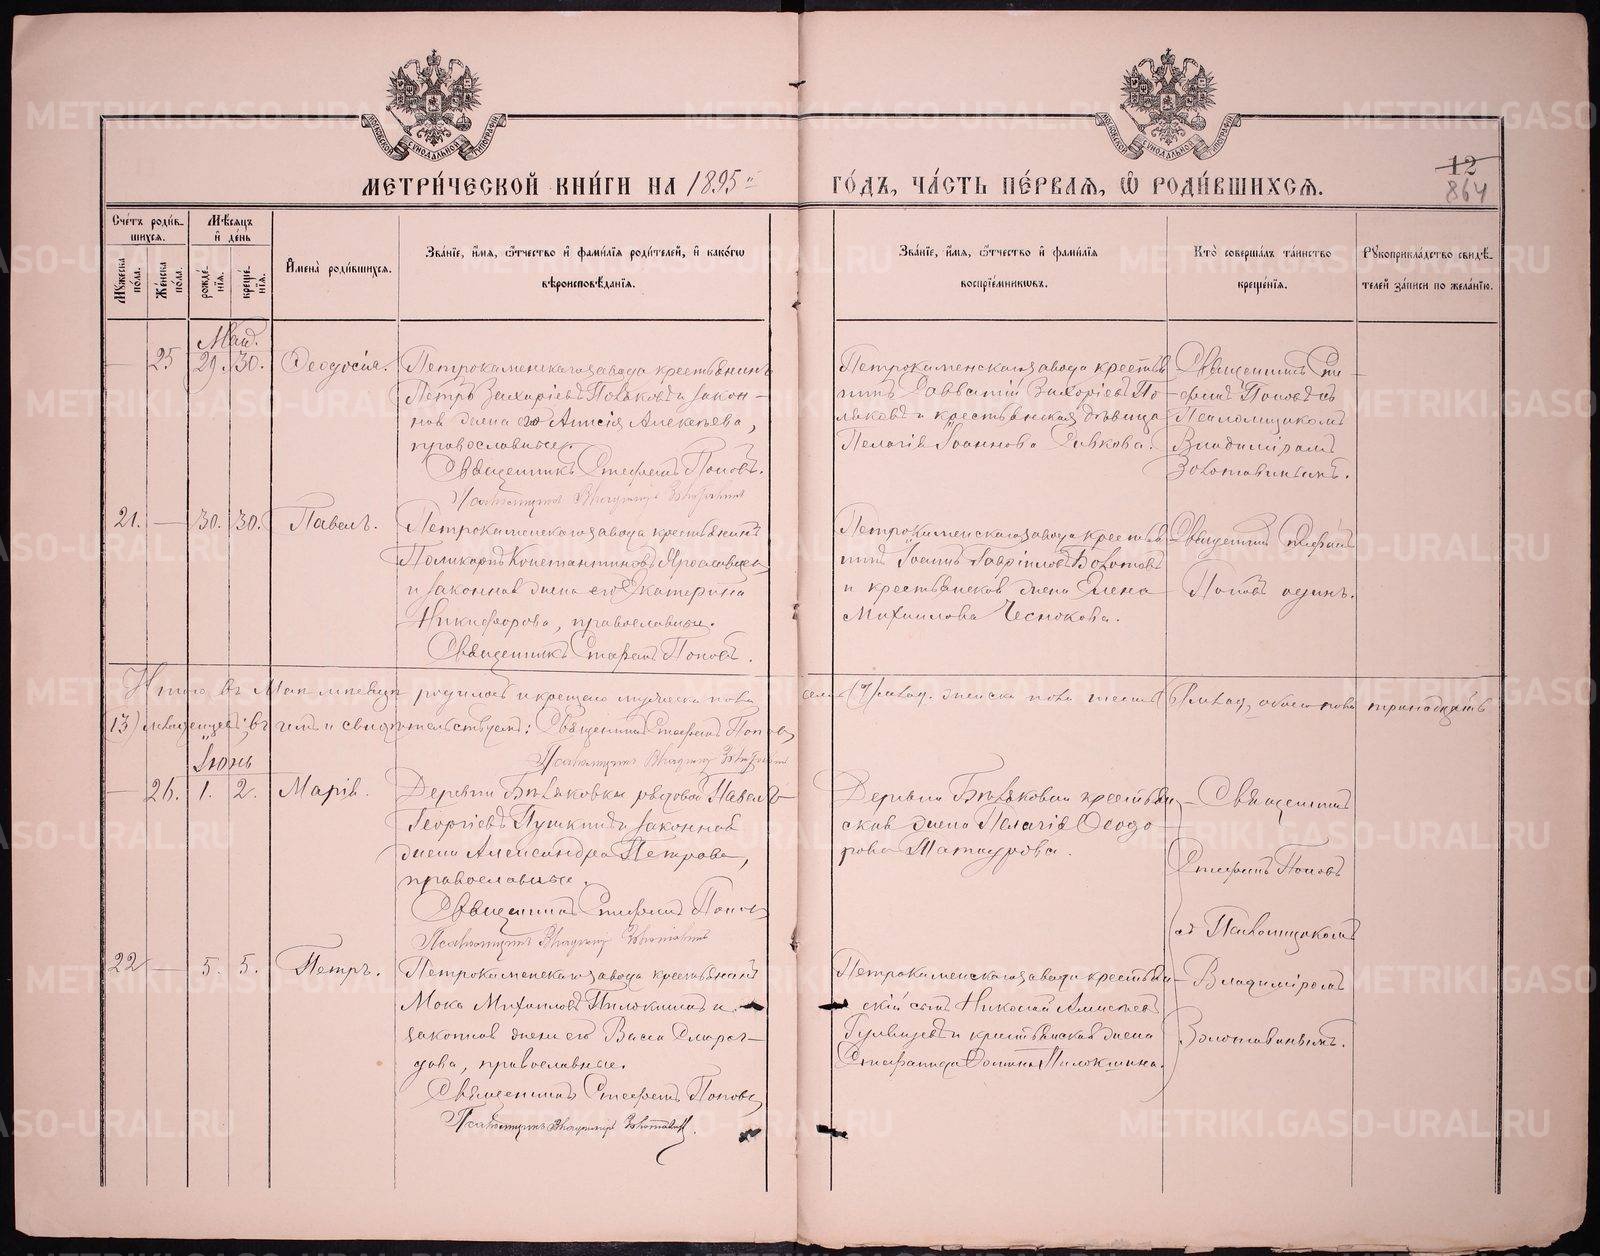 МЕТРИ́ЧЕСКОЙ КНИ́ГИ НА 1895 ГО́ДЪ, ЧА́СТЬ ПЕ́РВАѦ, Ѿ РОДИ́ВШИХСѦ.
12
864
Сче́тъ роди́вшихсѧ.
Мѣ́сѧцъ и҆ де́нь
Мꙋ́жеска по́ла.
Же́нска по́ла.
рожде́нїѧ.
креще́нїѧ.
И҆мена̀ роди́вшихсѧ.
Зва́нїе, и҆́мѧ, ѻ҆́тчество и҆ фами́лїѧ роди́телей, и҆ како́гѡ вѣроисповѣ́данїѧ.
Зва́нїе, и҆́мѧ, ѻ҆́тчество и҆ фами́лїѧ воспрїе́мникѡвъ.
Кто̀ соверша́лъ та́инство креще́нїѧ.
Рꙋкоприкла́дство свидѣ́телей за́писи по жела́нїю.
Май.
— 25 29. 30. Ѳеодосія.
Петрокаменскаго завода крестьянинъ
Петръ Захаріевъ Поляковъ и закон-
ная жена его Анисія Алексѣева,
православные.
Священникъ Стефанъ Поповъ.
Псаломщикъ Владиміръ Золотавинъ
Петрокаменскаго завода крестья
нинъ Савватій Захаріевъ По-
ляковъ и крестьянская дѣвица
Пелагія Іоаннова
Священникъ Сте-
фанъ Поповъ съ
Псаломщикомъ
Владиміромъ
Золотавинымъ.
21. — 30. 30. Павелъ.
Петрокаменскаго завода крестьянинъ
Поликарпъ Константиновъ Ярославцев
и законная жена его Екатерина
Никифорова, православные.
Священникъ Стефанъ Поповъ.
Петрокаменскаго завода крестья
нинъ Іоаннъ Гавріиловъ Болотовъ
и крестьянская жена Елена
Михаилова Чеснокова.
Священникъ Стефанъ
Поповъ одинъ.
Итого въ Маѣ мѣсяцѣ родилось и крещено мужеска пола семь (7) млад. женска пола шесть (6) млад. обоего пола тринадцать
(13) младенцевъ; въ чемъ и свидѣтельствуемъ: Священникъ Стефанъ Поповъ
Псаломщикъ Владиміръ Золотавинъ
Іюнь
— 26. 1. 2. Марія.
Деревни Бѣляковки рядовой Павелъ
Георгіевъ Пушкинъ и законная
жена Александра Петрова,
православные.
Священникъ Стефанъ Поповъ
Псаломщикъ Владиміръ Золотавинъ
Деревни Бѣляковки крестьян
ская жена Пелагія Ѳеодо-
рова Матафонова.
Священникъ
Стефанъ Поповъ
съ Псаломщикомъ
Владиміромъ
Золотавинымъ.
22 — 5. 5. Петръ.
Петрокаменскаго завода крестьянинъ
Мока Михаиловъ Пилокминъ и
законная жена его Васса
православные.
Священникъ Стефанъ Поповъ
Псаломщикъ Владиміръ Золотавинъ.
Петрокаменскаго завода крестьян
скій сынъ Николай
и крестьянская жена
Стефанида Пилокмина.